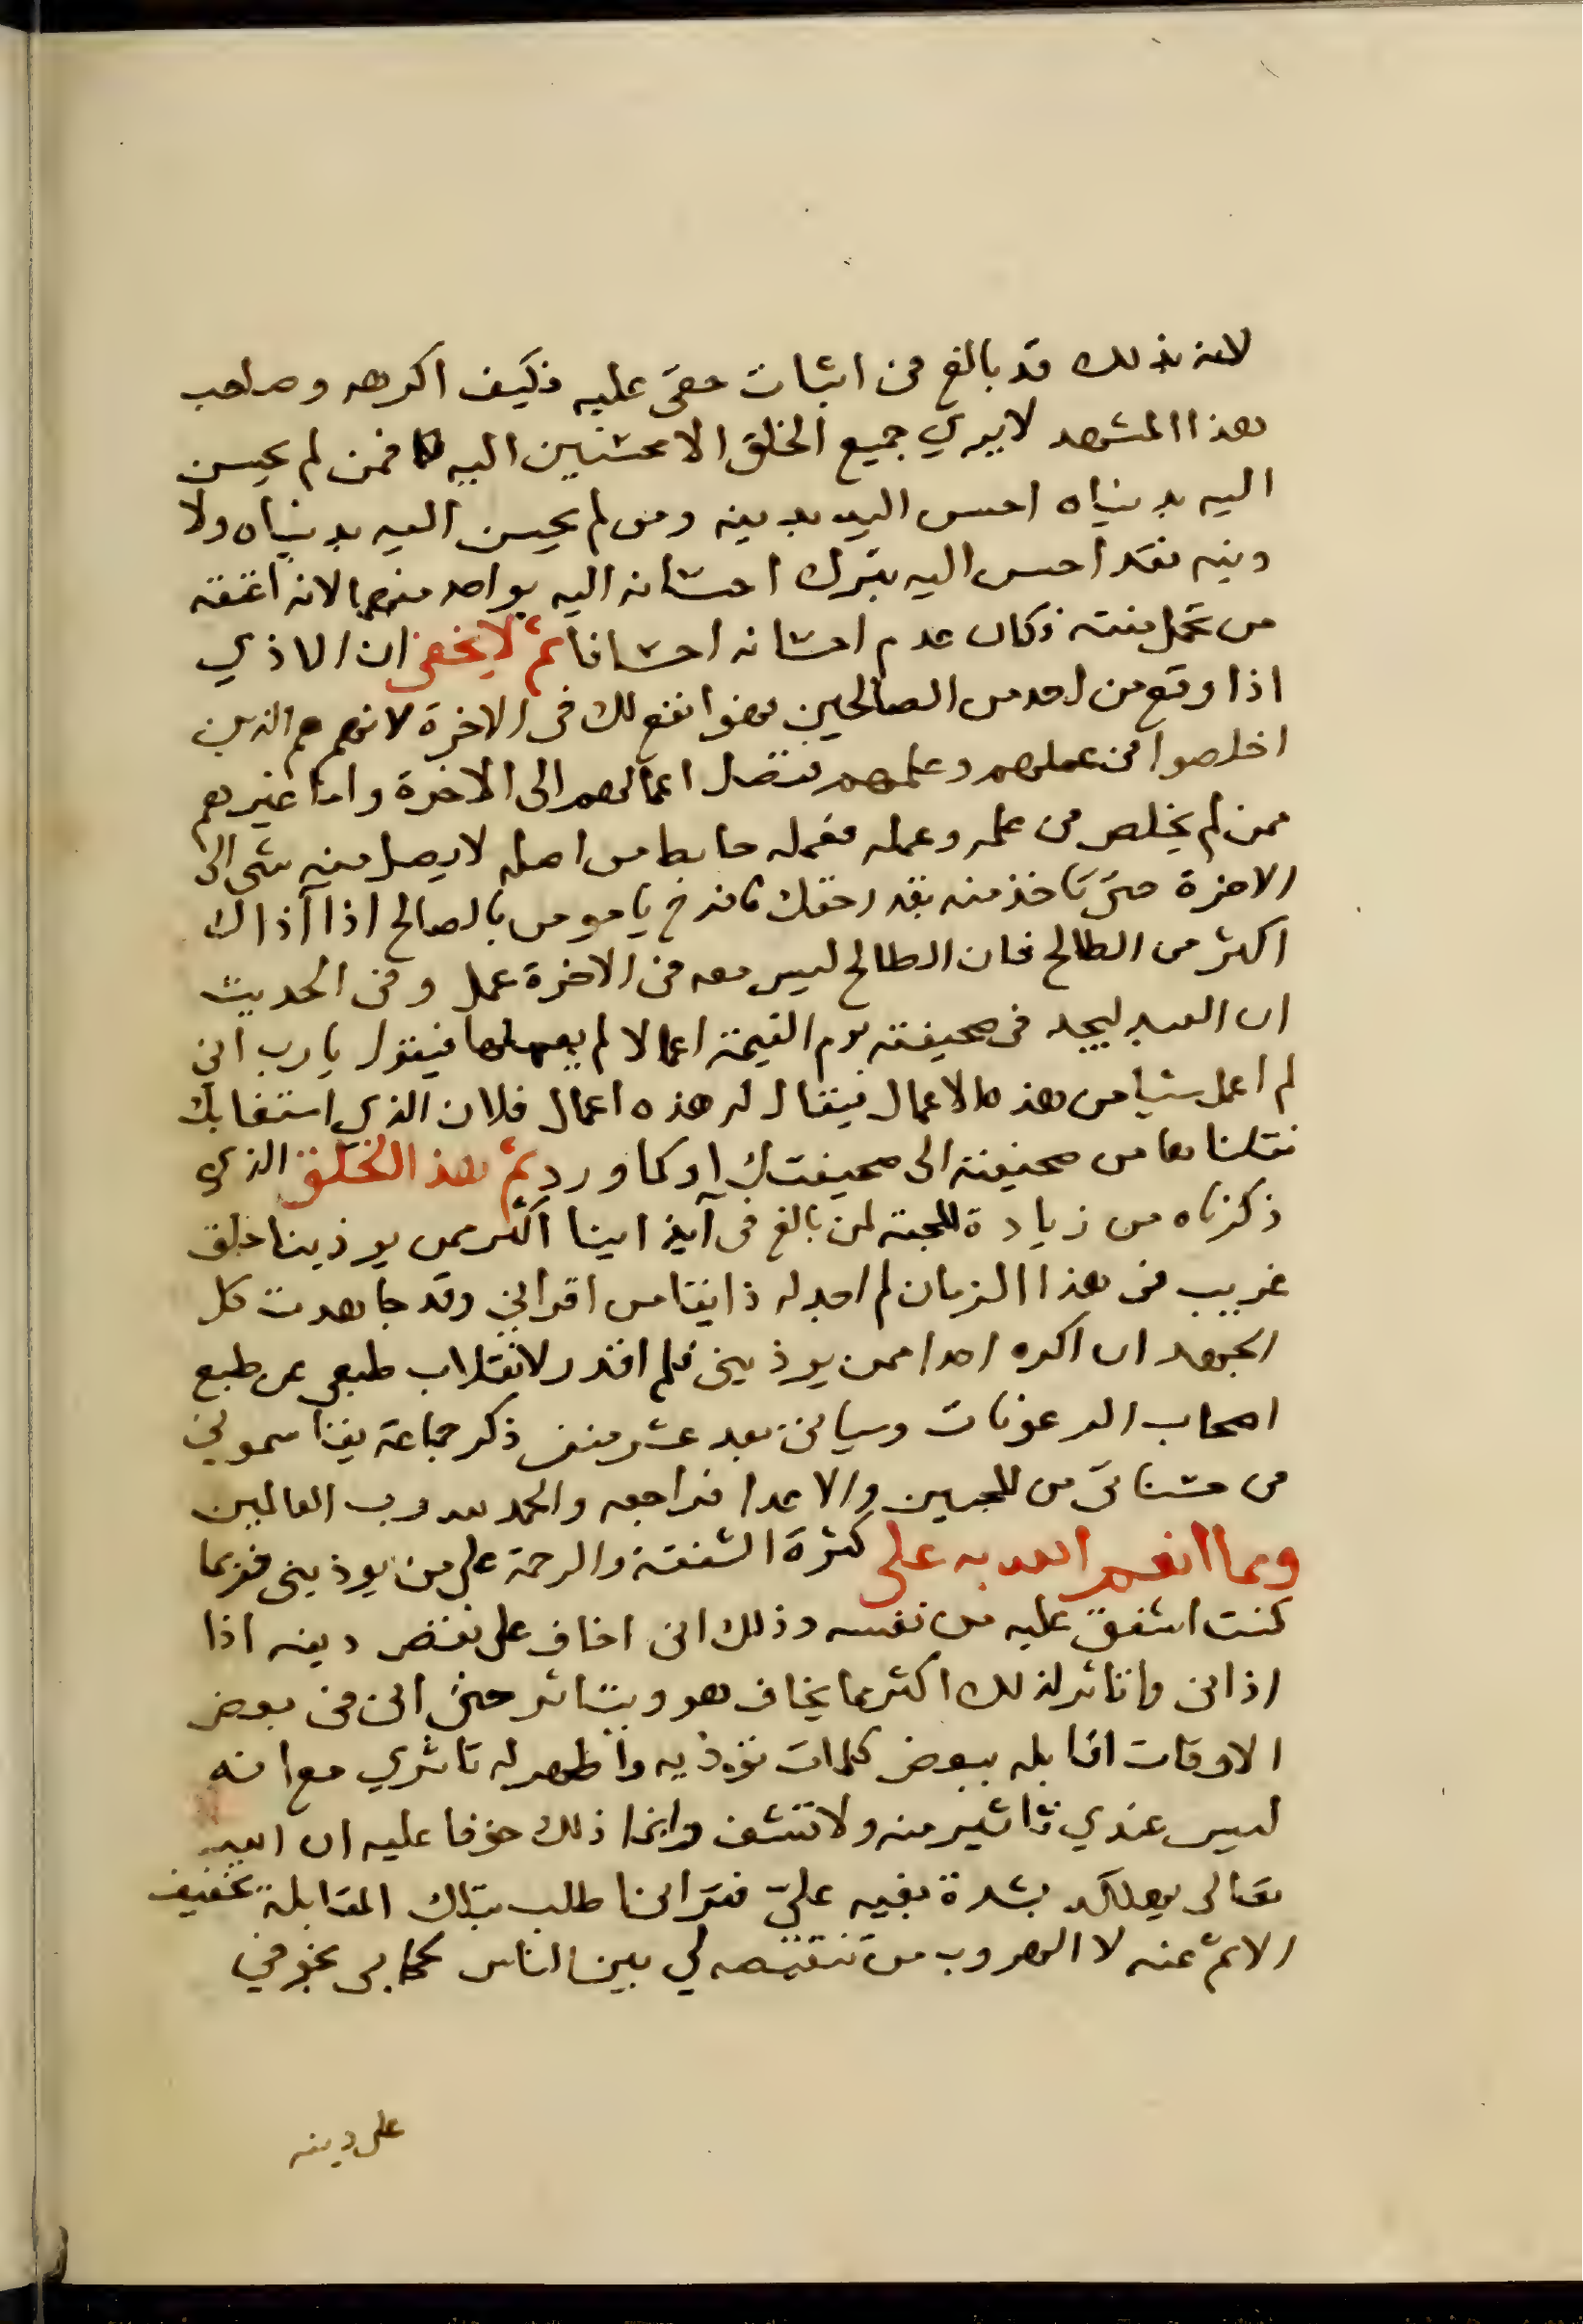 لانه بذلك قد بالغ في اثبات حقي عليه فكيف اكرهه وصاحب
هذا المشهد لا يري جميع الخلق الا محسنين اليه فمن لم يحسن
اليه بدنياه احسن اليه بدينه ومن لم يحسن اليه بدنياه ولا
دينه فقد احسن اليه بترك احسانه اليه بواحد منهما لانه اعتقه
من تحمل منته فكان عدم احسانه احسانا ثم لا يخفى ان الاذي
اذا وقع من احد من الصالحين فهو انفع لك في الاخرة لانهم هم الذين
اخلصوا في عملهم وعلمهم فتصل اعمالهم الى الاخرة واما غيرهم
ممن لم يخلص في علمه وعمله فعمله حابط من اصله لا يصل منه شي الى
الاخرة حتى تاخذ منه بقدر حقك فافرح يا موسى بالصالح اذا آذاك
اكثر من الطالح فان الطالح ليس معه في الاخرة عمل وفي الحديث
ان العبد ليجد في صحيفته يوم القيمة اعمالا لم يعملها فيقول يا رب اني
لم اعمل شيا من هذه الاعمال فيقال له هذه اعمال فلان الذي استغابك
نقلناها من صحيفته الى صحيفتك او كما ورد ثم هذا الخلق الذي
ذكرناه من زيادة المحبة لمن بالغ في آيذاينا اكثر ممن يوذينا خلق
غريب في هذا الزمان لم اجد له ذايقا من اقراني وقد جاهدت كل
الجهد ان اكره احدا ممن يوذيني فلم اقدر لانقلاب طبعي عن طبع
اصحاب الرعونات وسياتي بعد عشر منن ذكر جماعة يقاسموني
في حسناتي من المحبين والاعدا فراجعه والحمد لله رب العالمين
ومما انعم الله به علي كثرة الشفقة والرحمة على من يوذيني فربما
كنت اشفق عليه من نفسه وذلك اني اخاف على نقص دينه اذا
اذاني واتاثر لذلك اكثر مما يخاف هو ويتاثر حتى اني في بعض
الاوقات اقابله ببعض كلمات توذيه واظهر له تاثري مع انه
ليس عندي تاثير منه ولا تشف وانما ذلك خوفا عليه ان الله
تعالى يهلكه بشدة بغيه عليّ فترانا طلب بتلك المقابلة تخفيف
الاثم عنه لا الهروب من تنقيصه لي بين الناس بل خوفي
على دينه